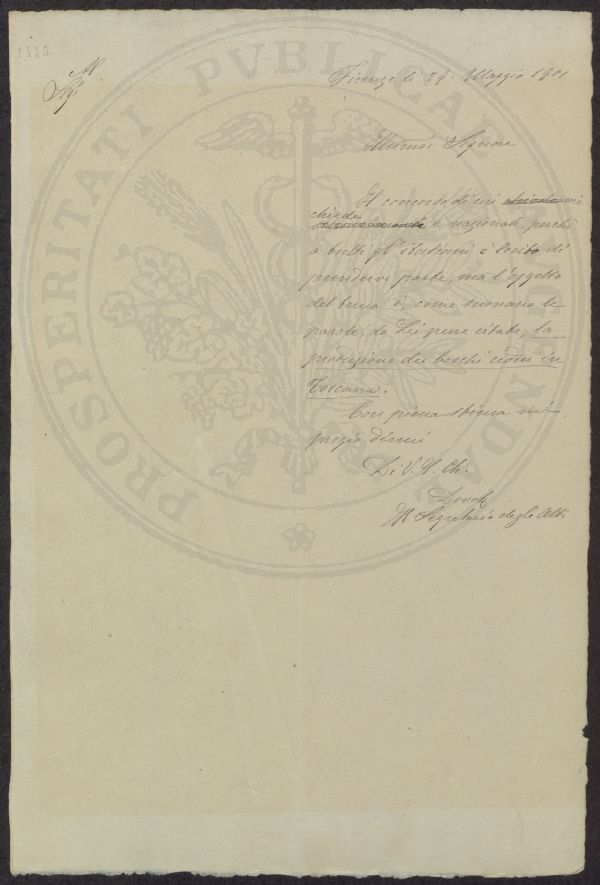 1415
Al
Sigr
Firenze li 29. Maggio 1901
Signore
Il concorso di cui mi
chiede è nazionale, perchè
a tutti gl'italiani è lecito di
prendervi parte, ma l'oggetto
del tema è, come suonano le
parole, da Lei pure citate, la
produzione dei boschi cedui in
Toscana.
Con piena stima mi
pregio dirmi
Di V. S. Ch.
Devot
Il Segretario degli Atti
PROSPERITATI PVBLICAE AVGENDAE